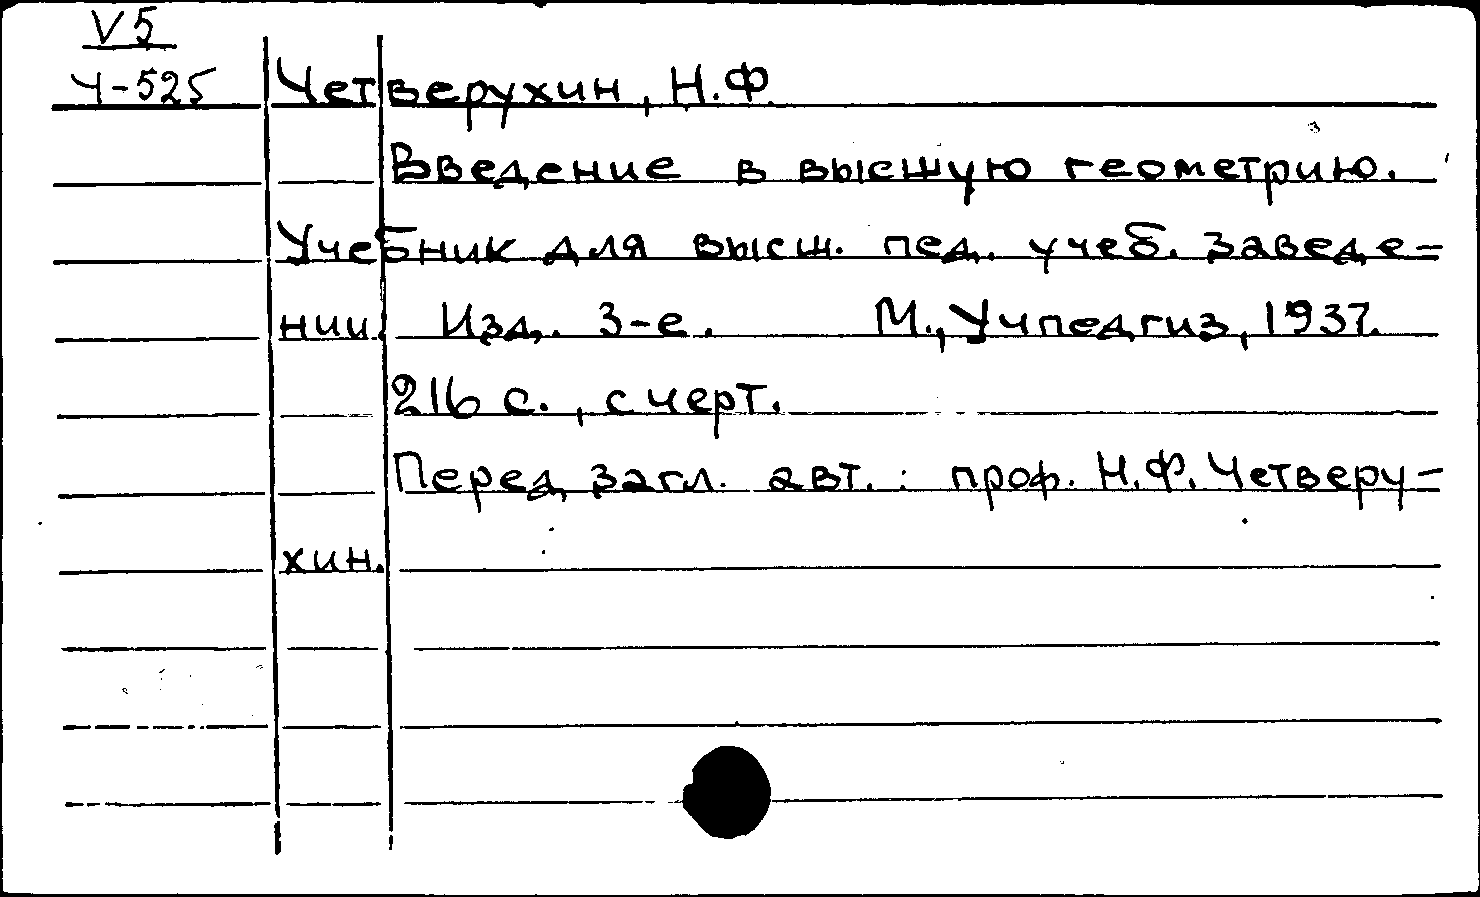 V5
Ч-525
Четверухин, Н.Ф.
Введение в высшую геометрию.
Учебник для высш. пед. учеб. заведе=
нии. Изд. 3-е. М., Учпедгиз, 1937.
216 с., с черт.
Перед загл. авт.: проф. Н.Ф. Четверу-
хин.